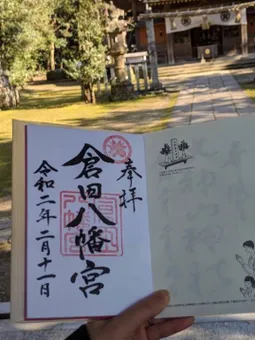 奉拝
倉田八幡宮
令和二年二月十一日